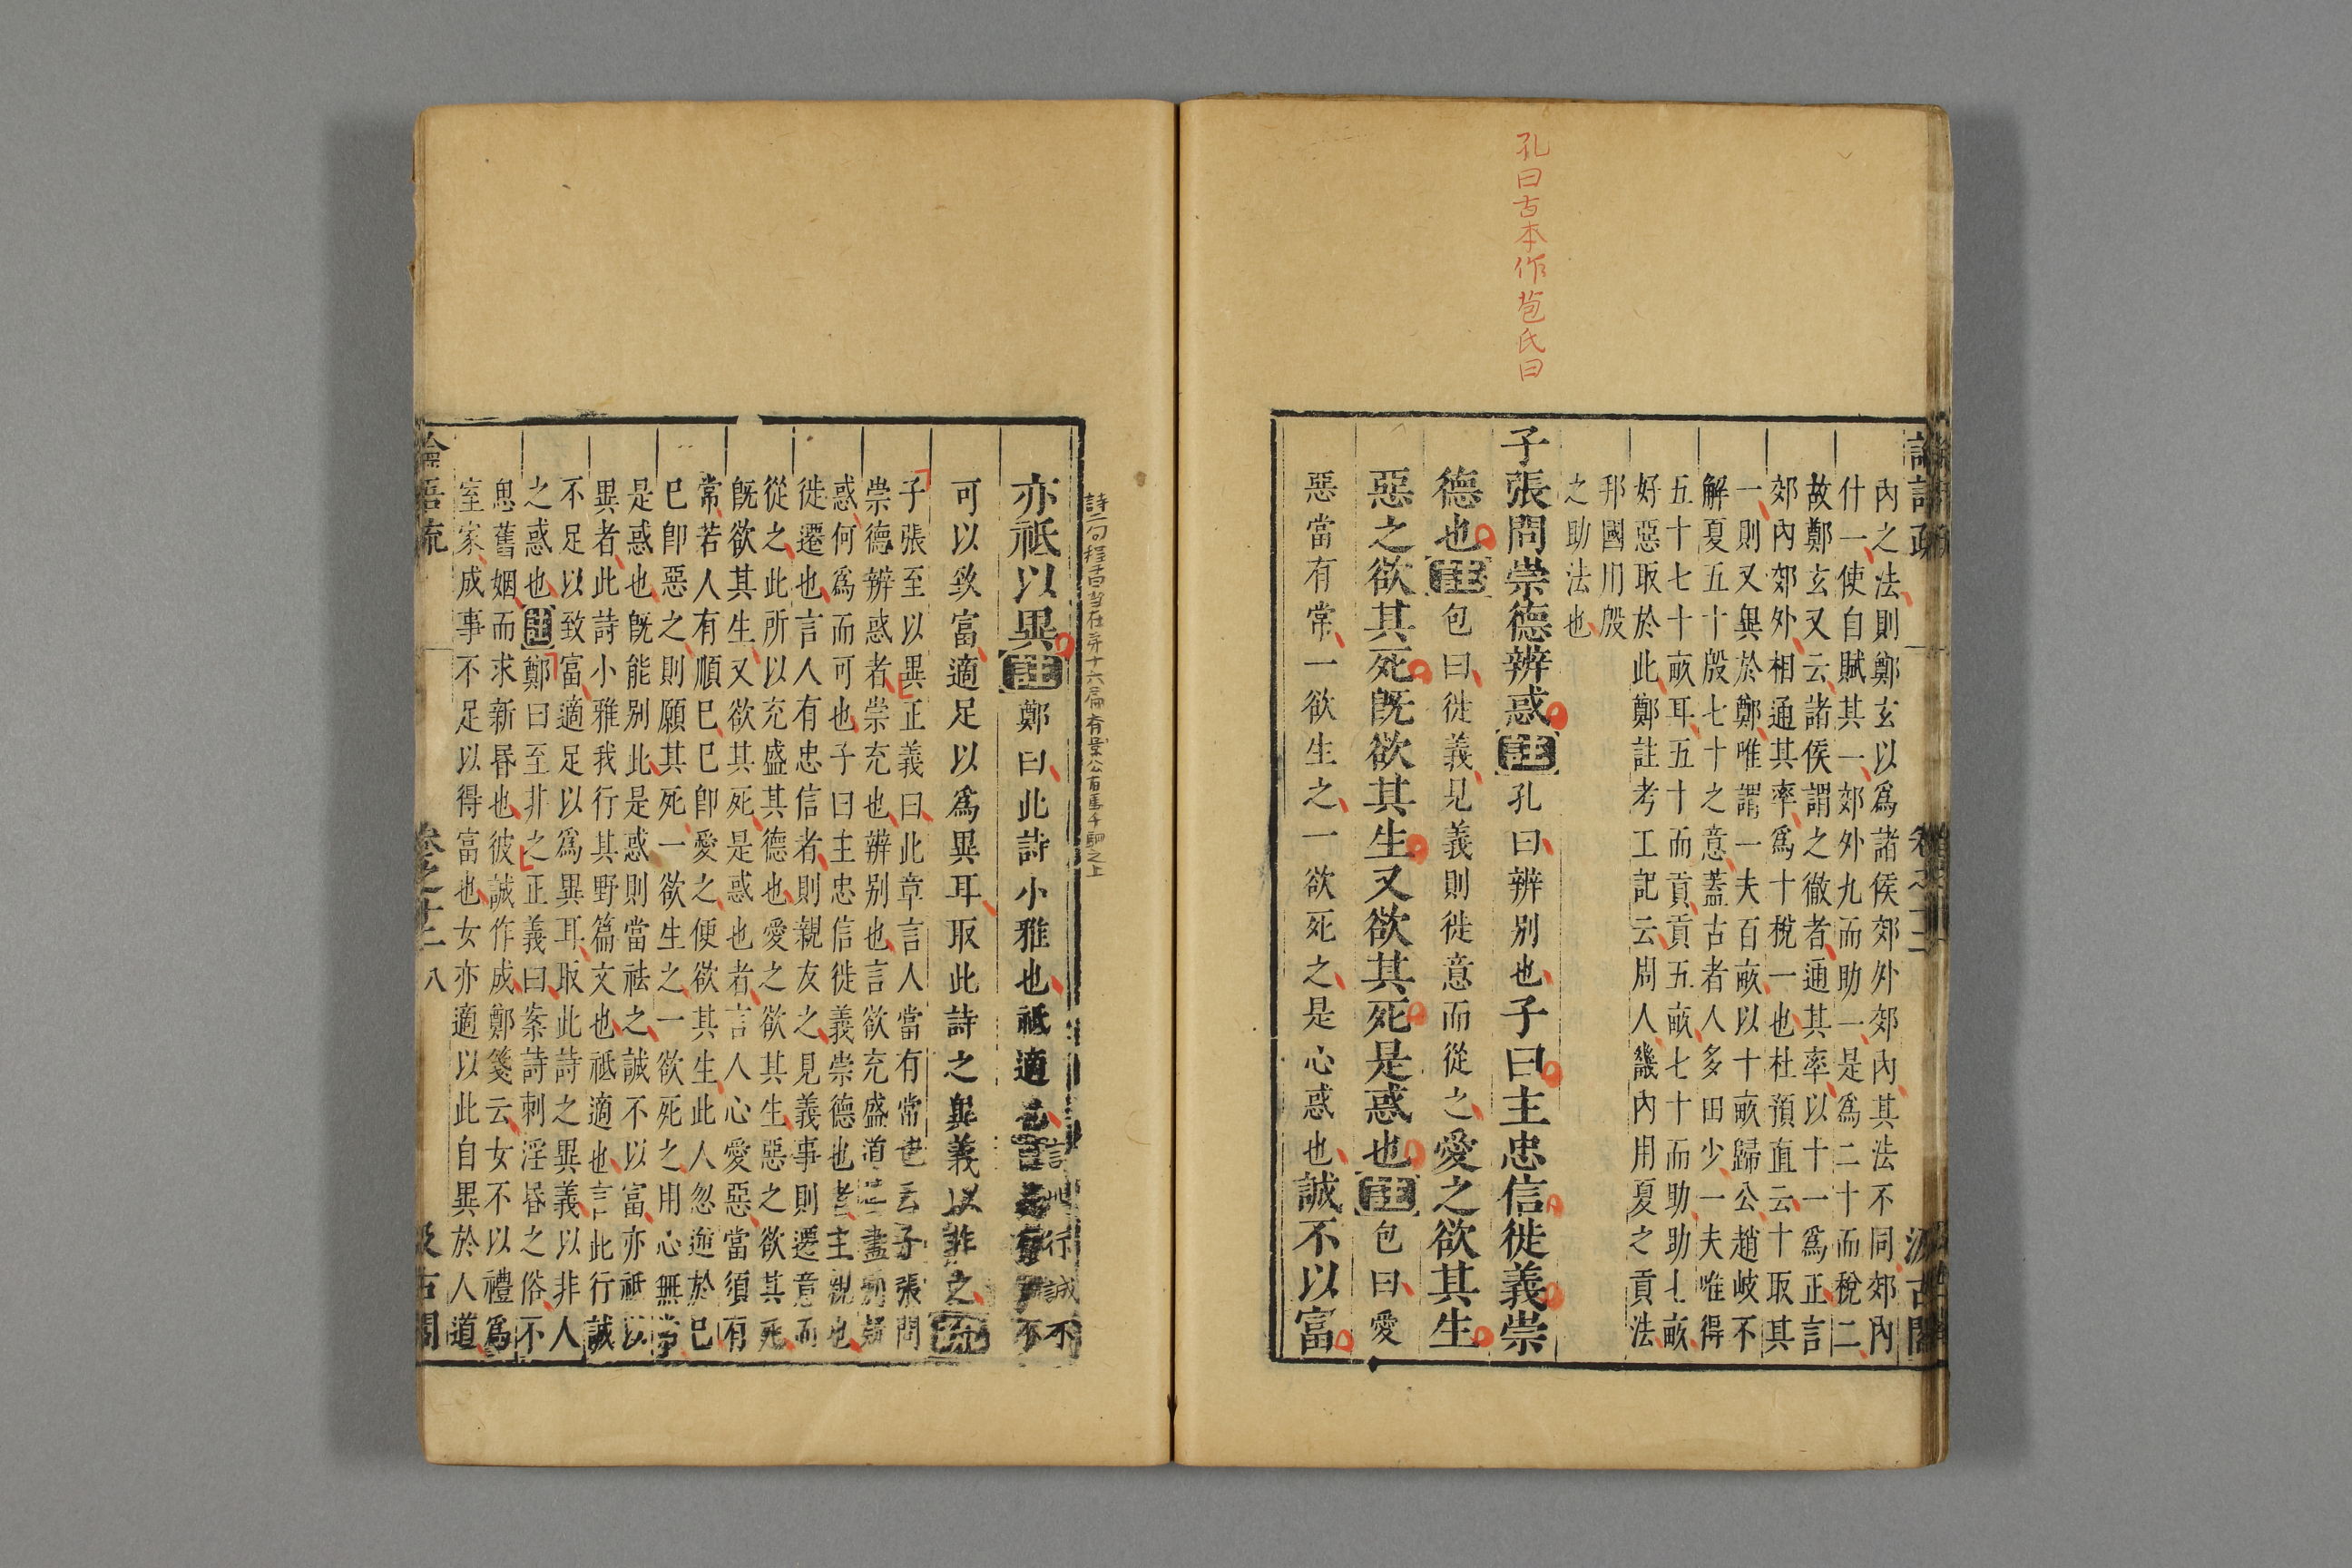 孔曰古本作苞氏曰
內之法則鄭玄以爲諸侯郊外郊內其法不同郊內
什一使自賦其一郊外九而助一是爲二十而稅二
故鄭玄又云諸侯謂之徹者通其率以十一爲正言
郊內郊外相通其率爲十稅一也杜預直云十取其
一則又異於鄭唯謂一夫百畝以十畝歸公趙岐不
解夏五十殷七十之意蓋古者人多田少一夫唯得
五十七十畝耳五十而貢貢五畝七十而助助七畝
好惡取於此鄭註考工記云周人畿內用夏之貢法
邦國用殷
之助法也
子張問崇德辨惑註孔曰辨別也子曰主忠信徙義崇
德也註包曰徙義見義則徙意而從之愛之欲其生
惡之欲其死旣欲其生又欲其死是惑也註包曰愛
惡當有常一欲生之一欲死之是心惑也誠不以富
卷之十二
汲古閣
詩二句程子曰當在第十六篇有景公有馬千駟之上
亦祗以異註鄭曰此詩小雅也祗適也言此行誠不
可以致富適足以爲異耳取此詩之異義以非之疏
子張至以異正義曰此章言人當有常德也云子張問
崇德辨惑者崇充也辨別也言欲充盛道德盡別疑
惑何爲而可也子曰主忠信徙義崇德也者主親也
徙遷也言人有忠信者則親友之見義事則遷意而
從之此所以充盛其德也愛之欲其生惡之欲其死
旣欲其生又欲其死是惑也者言人心愛惡當須有
常若人有順已已卽愛之便欲其生此人忽逆於已
已卽惡之則願其死一欲生之一欲死之用心無常
是惑也旣能別此是惑則當祛之誠不以富亦祗以
異者此詩小雅我行其野篇文也祗適也言此行誠
不足以致富適足以爲異耳取此詩之異義以非人
之惑也註鄭曰至非之正義曰案詩刺淫昏之俗不
思舊姻而求新昏也彼誠作成鄭箋云女不以禮爲
室家成事不足以得富也女亦適以此自異於人道
論語疏
卷之十二
八
汲古閣